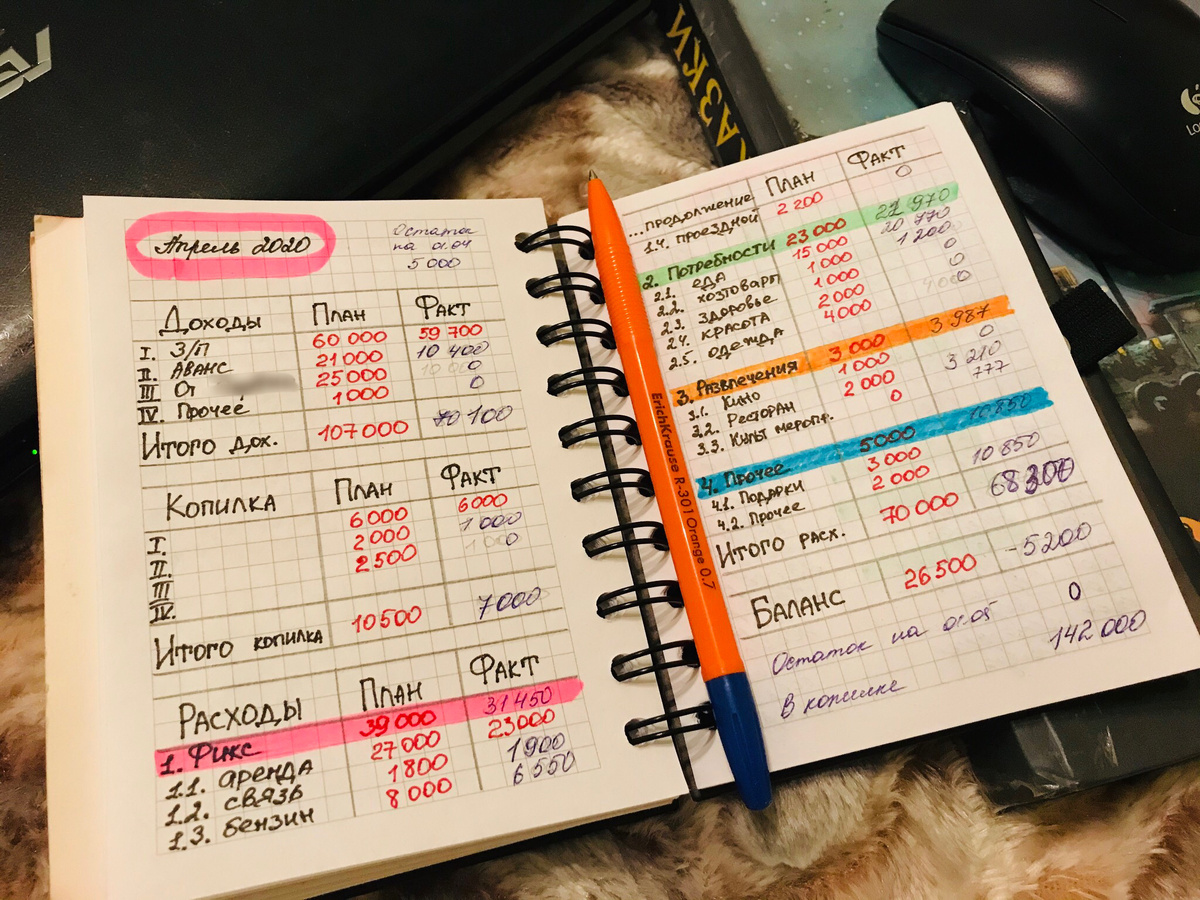 Апрель 2020
Остаток
на 01.04
5 000
Доходы План Факт
I. З/П 60 000 59 700
II. Аванс 21 000 10 400
III От 25 000 0
IV. Прочее 1 000 0
Итого дох. 107 000 70 100
Копилка План Факт
I. 6 000 6 000
II. 2 000 1 000
III 2 500 0
IV.
Итого копилка 10 500 7 000
Расходы План Факт
1. Фикс 39 000 31 450
1.1. аренда 27 000 23 000
1.2. связь 1 800 1 900
1.3. бензин 8 000 6 550
...продолжение План Факт
1.4. проездной 2 200 0
2. Потребности 23 000 21 970
2.1. еда 15 000 20 770
2.2. хозтовары 1 000 1 200
2.3. здоровье 1 000 0
2.4. красота 2 000 0
2.5. одежда 4 000 0
3. Развлечения 3 000 3 987
3.1. Кино 1 000 0
3.2. Ресторан 2 000 3 210
3.3. Культ меропр. 0 777
4. Прочее 5 000 10 850
4.1. Подарки 3 000
4.2. Прочее 2 000 10 850
Итого расх. 70 000 68 300
Баланс 26 500 -5 200
Остаток на 01.05 0
В копилке 142 000
ErichKrause R-301 Orange 0.7